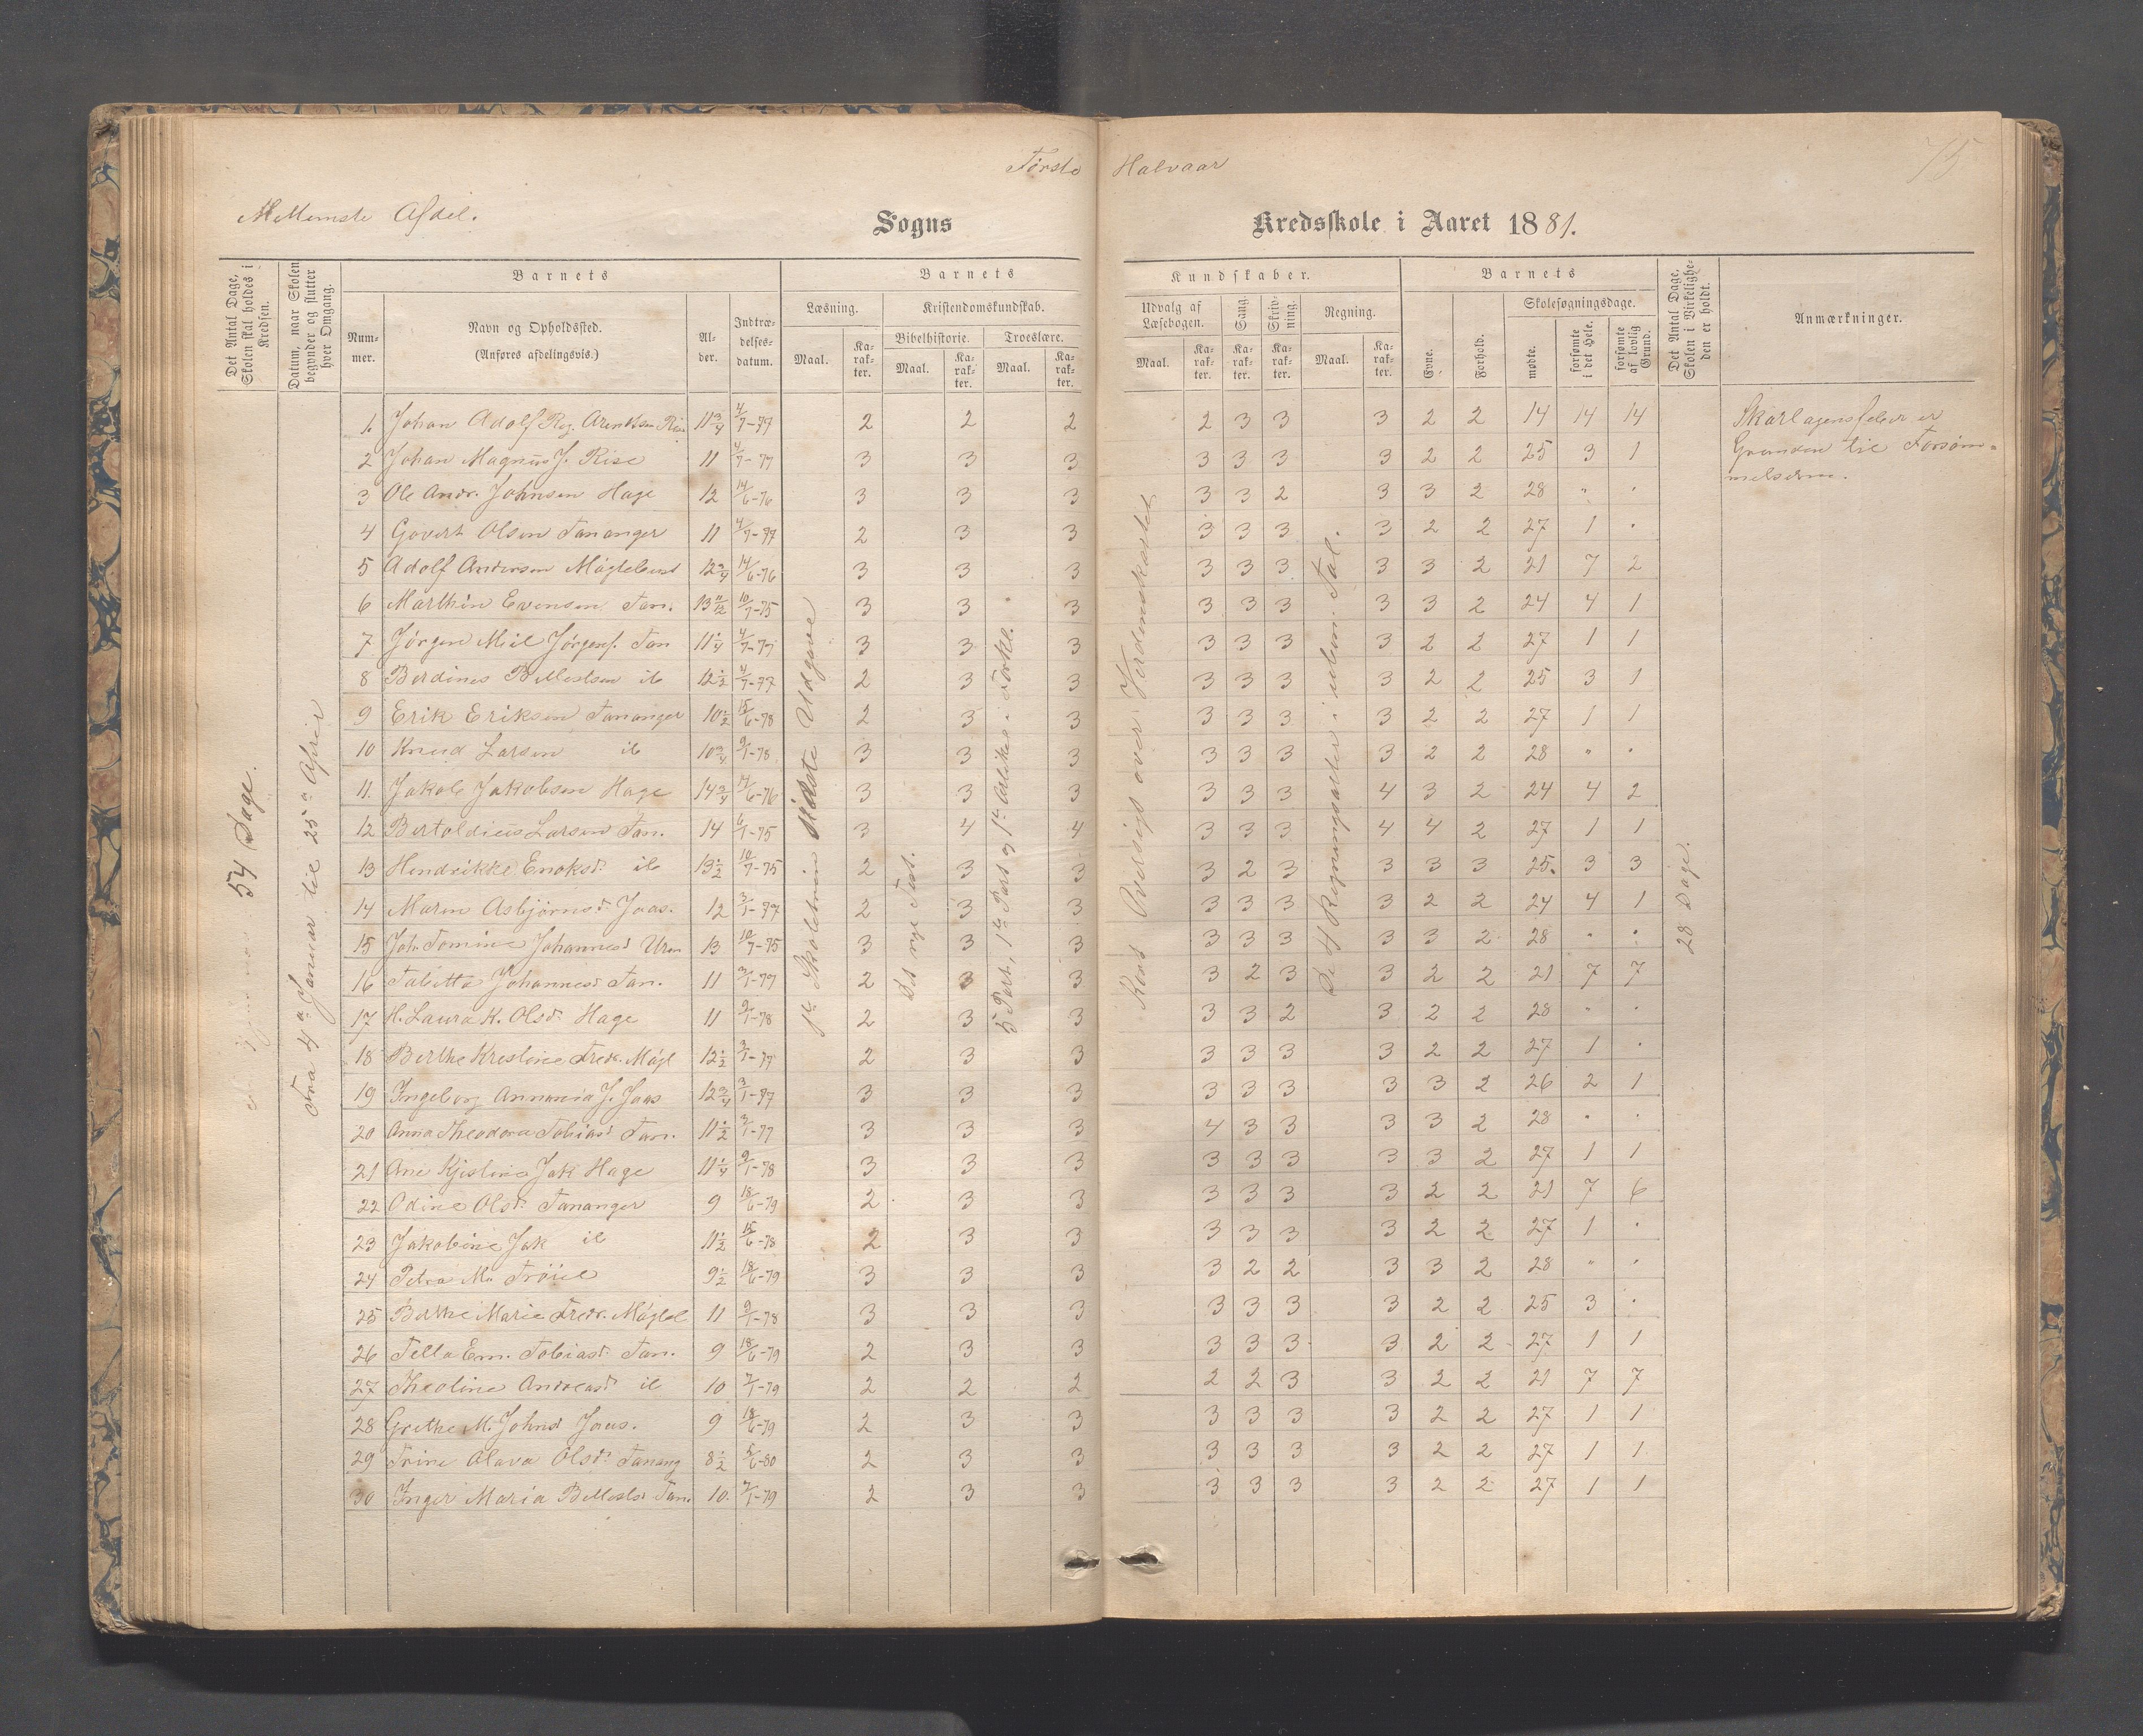 Første Halvaar
75
Mellemste Afdel.
Sogns Kredsskole i Aaret 1881.
Det Antal Dage, Skolen skal holdes i Kredsen.
Datum, naar Skolen begynder og slutter hver Omgang.
Barnets
Nummer.
Navn og Opholdssted.
(Anføres afdelingsvis.)
Alder.
Indtrædelsesdatum.
Barnets Kundskaber.
Læsning.
Maal. Karakter.
Kristendomskundskab.
Bibelhistorie.
Maal. Karakter.
Troeslære.
Maal. Karakter.
Udvalg af Læsebogen.
Maal. Karakter.
Sang.
Karakter.
Skrivning.
Karakter.
Regning.
Maal. Karakter.
Barnets
Evne.
Forhold.
Skolesøgningsdage.
mødte.
forsømte i det Hele.
forsømte af lovlig Grund.
Det Antal Dage, Skolen i Virkeligheden er holdt.
Anmærkninger.
54 Dage.
Fra 4de Januar til 25de April
Sidste Udgave
Det nye Test.
5 Part, 1ste Part og 1ste Artikel i Forkl.
Kort Oversigt over Verdenskartet
De 4 Regningsarter i ubn. Tal.
28 Dage.
1. Johan Adolf Reg. Arentsen Rise 11 3/4 4/7-77 2 2 2 2 3 3 3 2 2 14 14 14 Skarlagensfeber er
2 Johan Magnus J. Rise 11 4/7-77 3 3 3 3 3 3 3 2 2 25 3 1 Grunden til Forsøm-
melserne.
3 Ole Andr. Johnsen Hage 12 14/6-76 3 3 3 3 3 2 3 3 2 28 " "
4 Govert Olsen Tananger 11 4/7-77 2 3 3 3 3 3 3 2 2 27 1 "
5 Adolf Andersen 12 3/4 14/6-76 3 3 3 3 3 3 3 3 2 21 7 2
6 Marthin Evensen Tan. 13 11/12 10/7-75 3 3 3 3 3 3 3 3 2 24 4 1
7 Jørgen Jørgens. Tan 11 1/4 4/7-77 3 3 3 3 3 3 3 2 2 27 1 1
8 Berdines 12 1/2 4/7-77 2 3 3 3 3 3 3 2 2 25 3 1
9 Erik Eriksen Tananger 10 1/2 15/6-78 2 3 3 3 3 3 3 2 2 27 1 1
10 Knud Larsen 10 3/4 9/1-78 3 3 3 3 3 3 3 2 2 28 " "
11. Jakob Jakobsen Hage 14 3/4 14/6-76 3 3 3 3 3 3 4 3 2 24 4 2
12 Bertoldius Larsen Tan. 14 6/1-75 3 4 4 3 3 3 4 4 2 27 1 1
13 Hendrikke Enoksd. 13 1/2 10/7-75 2 3 3 3 2 3 3 3 3 25 3 3
14 Maren Asbjørnsd. Jaas. 12 3/1-77 2 3 3 3 3 3 3 2 2 24 4 1
15 Joh. Tomine Johannesd 13 10/7-75 3 3 3 3 3 3 3 3 2 28 " "
16 Tabitta Johannesd. Tan. 11 3/1-77 2 3 3 3 2 3 3 2 2 21 7 7
17 H. Laura K. Olsd. Hage 11 9/1-78 2 3 3 3 3 2 3 2 2 28 " "
18 Berthe Krestine Fredr. 12 1/2 3/1-77 2 3 3 3 3 3 3 2 2 27 1 "
19 Ingeborg Annania J. Jaas 12 3/4 3/1-77 3 3 3 3 3 3 3 3 2 26 2 1
20 Anna Theodora Tobiasd Tan. 11 1/2 3/1-77 3 3 3 4 3 3 3 3 2 28 " "
21 Ane Kjistine Jak Hage 11 1/4 9/1-78 3 3 3 3 3 3 3 3 2 27 1 1
22 Odine Olsd. Tananger 9 18/6-79 2 3 3 3 3 3 3 2 2 21 7 6
23 Jakobine Jak 11 1/2 15/6-78 2 3 3 3 3 3 3 2 2 27 1 "
24 Petra M. 9 1/2 18/6-79 3 3 3 3 2 2 3 3 2 28 " "
25 Berthe Marie Fredr. 11 9/1-78 3 3 3 3 3 3 3 2 2 25 3 "
26 Tella Em. Tobiasd. Tan. 9 18/6-79 2 3 3 3 3 3 3 2 2 27 1 1
27 Theoline Andreasd 10 7/1-79 2 2 2 2 2 3 3 2 2 21 7 7
28 Grethe M. Johnsd Jaas. 9 18/6-79 2 3 3 3 3 3 3 2 2 27 1 1
29 Trine Olava Olsd. Tanang 8 1/2 5/6-80 2 3 3 3 3 3 3 2 2 27 1 1
30 Inger Maria Tan. 10 7/1-79 2 3 3 3 3 3 3 2 2 27 1 1